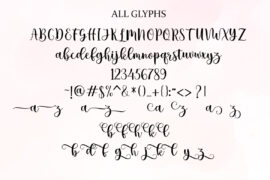 ALL GLYPHS
ABCDEFGHIJKLMNOPQRSTUVWXYZ
abcdefghijklmnopqrstuvwxyz
123456789
a z a z Ca Cz a z
b d f g h j k l y z